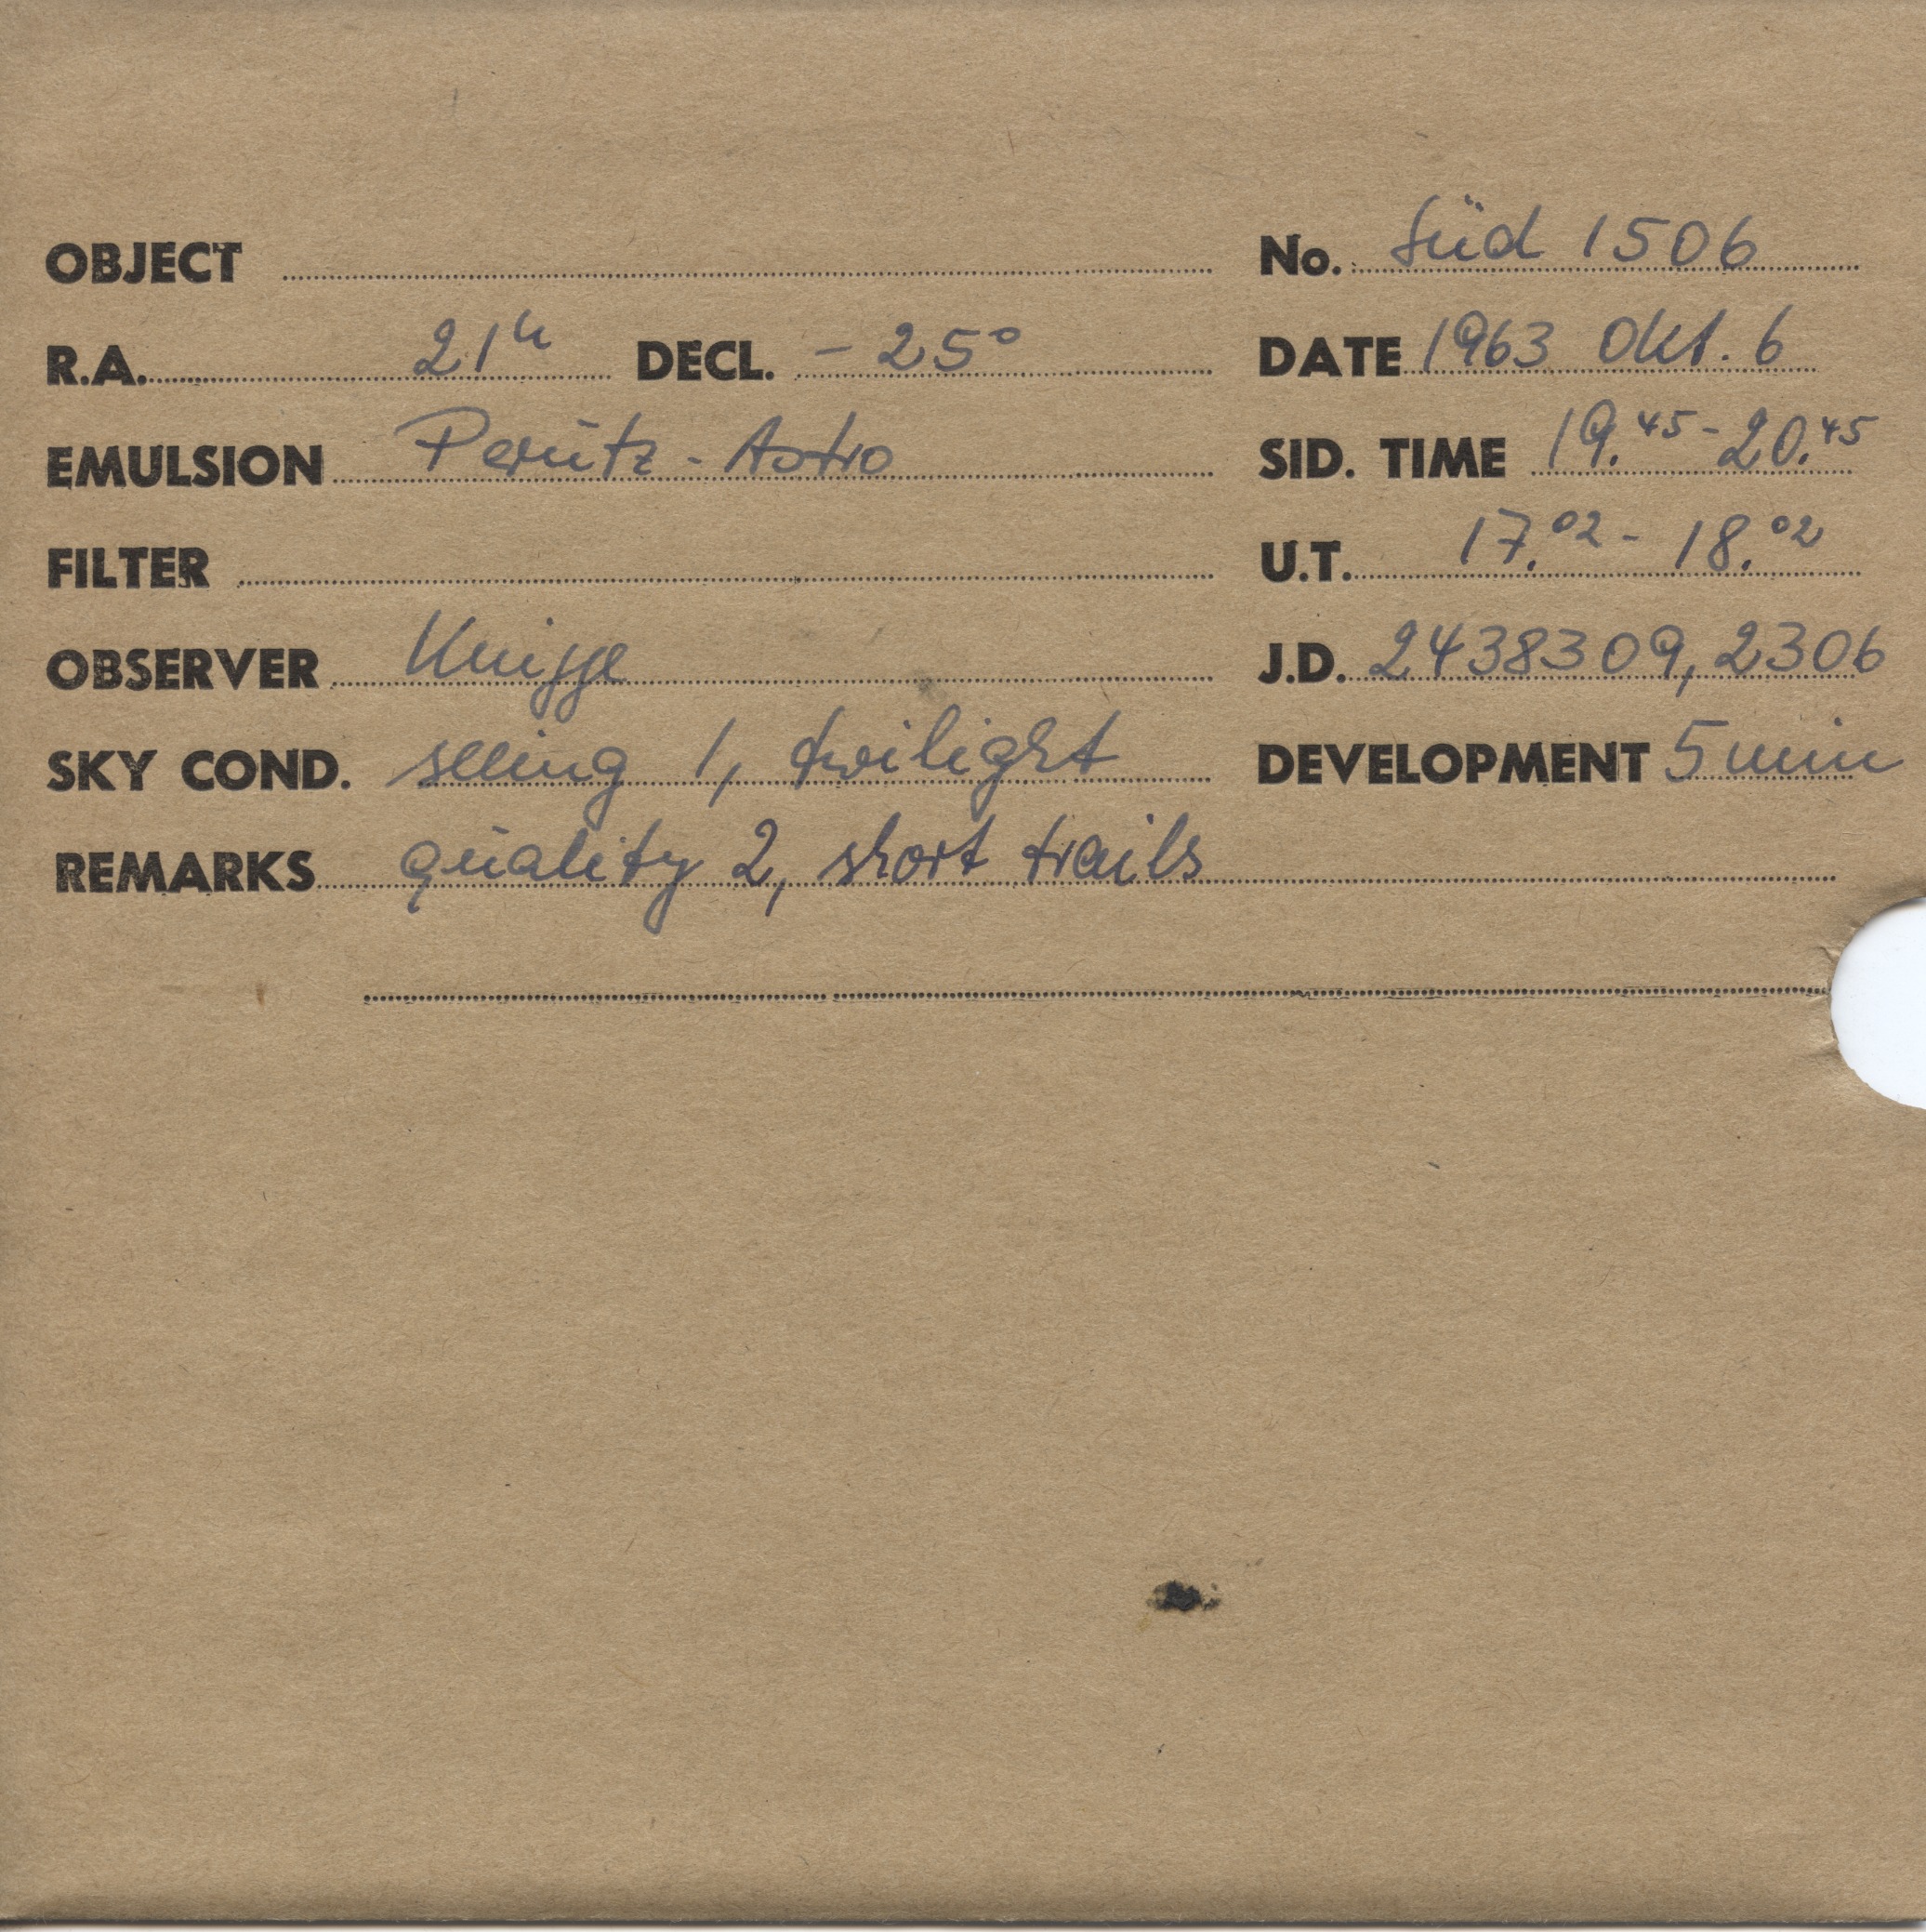 OBJECT No. Süd 1506
R.A. 21h DECL. - 25° DATE 1963 Okt. 6
EMULSION Perutz - Astro SID. TIME 19.45 - 20.45
FILTER U.T. 17.02 - 18.02
OBSERVER Knigge J.D. 2438309,2306
SKY COND. seeing 1, twilight DEVELOPMENT 5 min
REMARKS quality 2, short trails